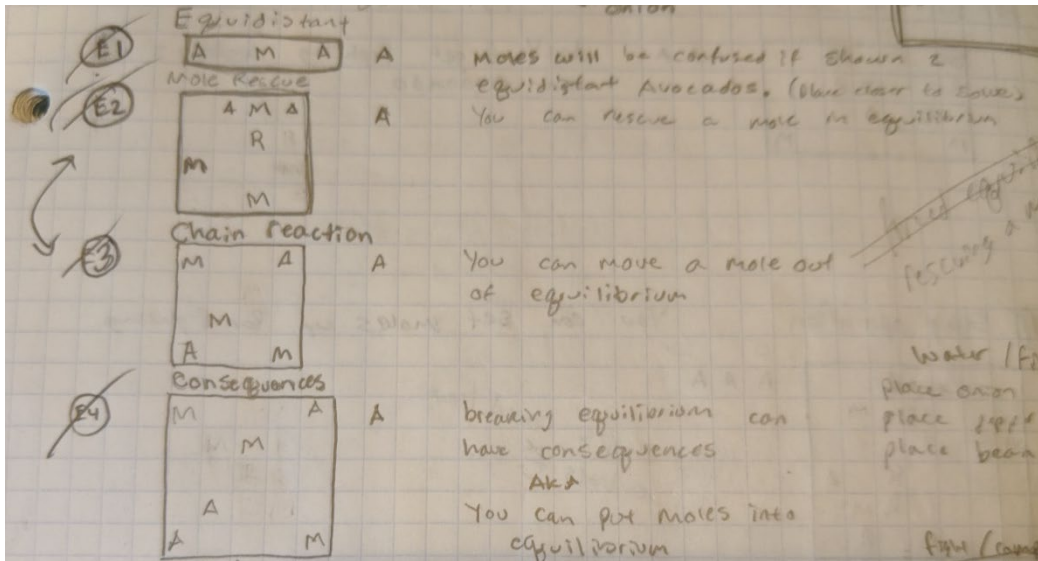 onion
Equidistant
E1 A M A A Moles will be confused if shown 2
equidistant Avocados. (place closer to
Mole Rescue
E2 A M A A You can rescue a mole in equilibrium
R
M
M
Chain reaction
E3 M A A You can move a mole out
of equilibrium
M
A M
rescuing a
Consequences
E4 M A A breaking equilibrium can
M have consequences
AKA
A You can put moles into
A M equilibrium
water / fi
place onion
place
place bean